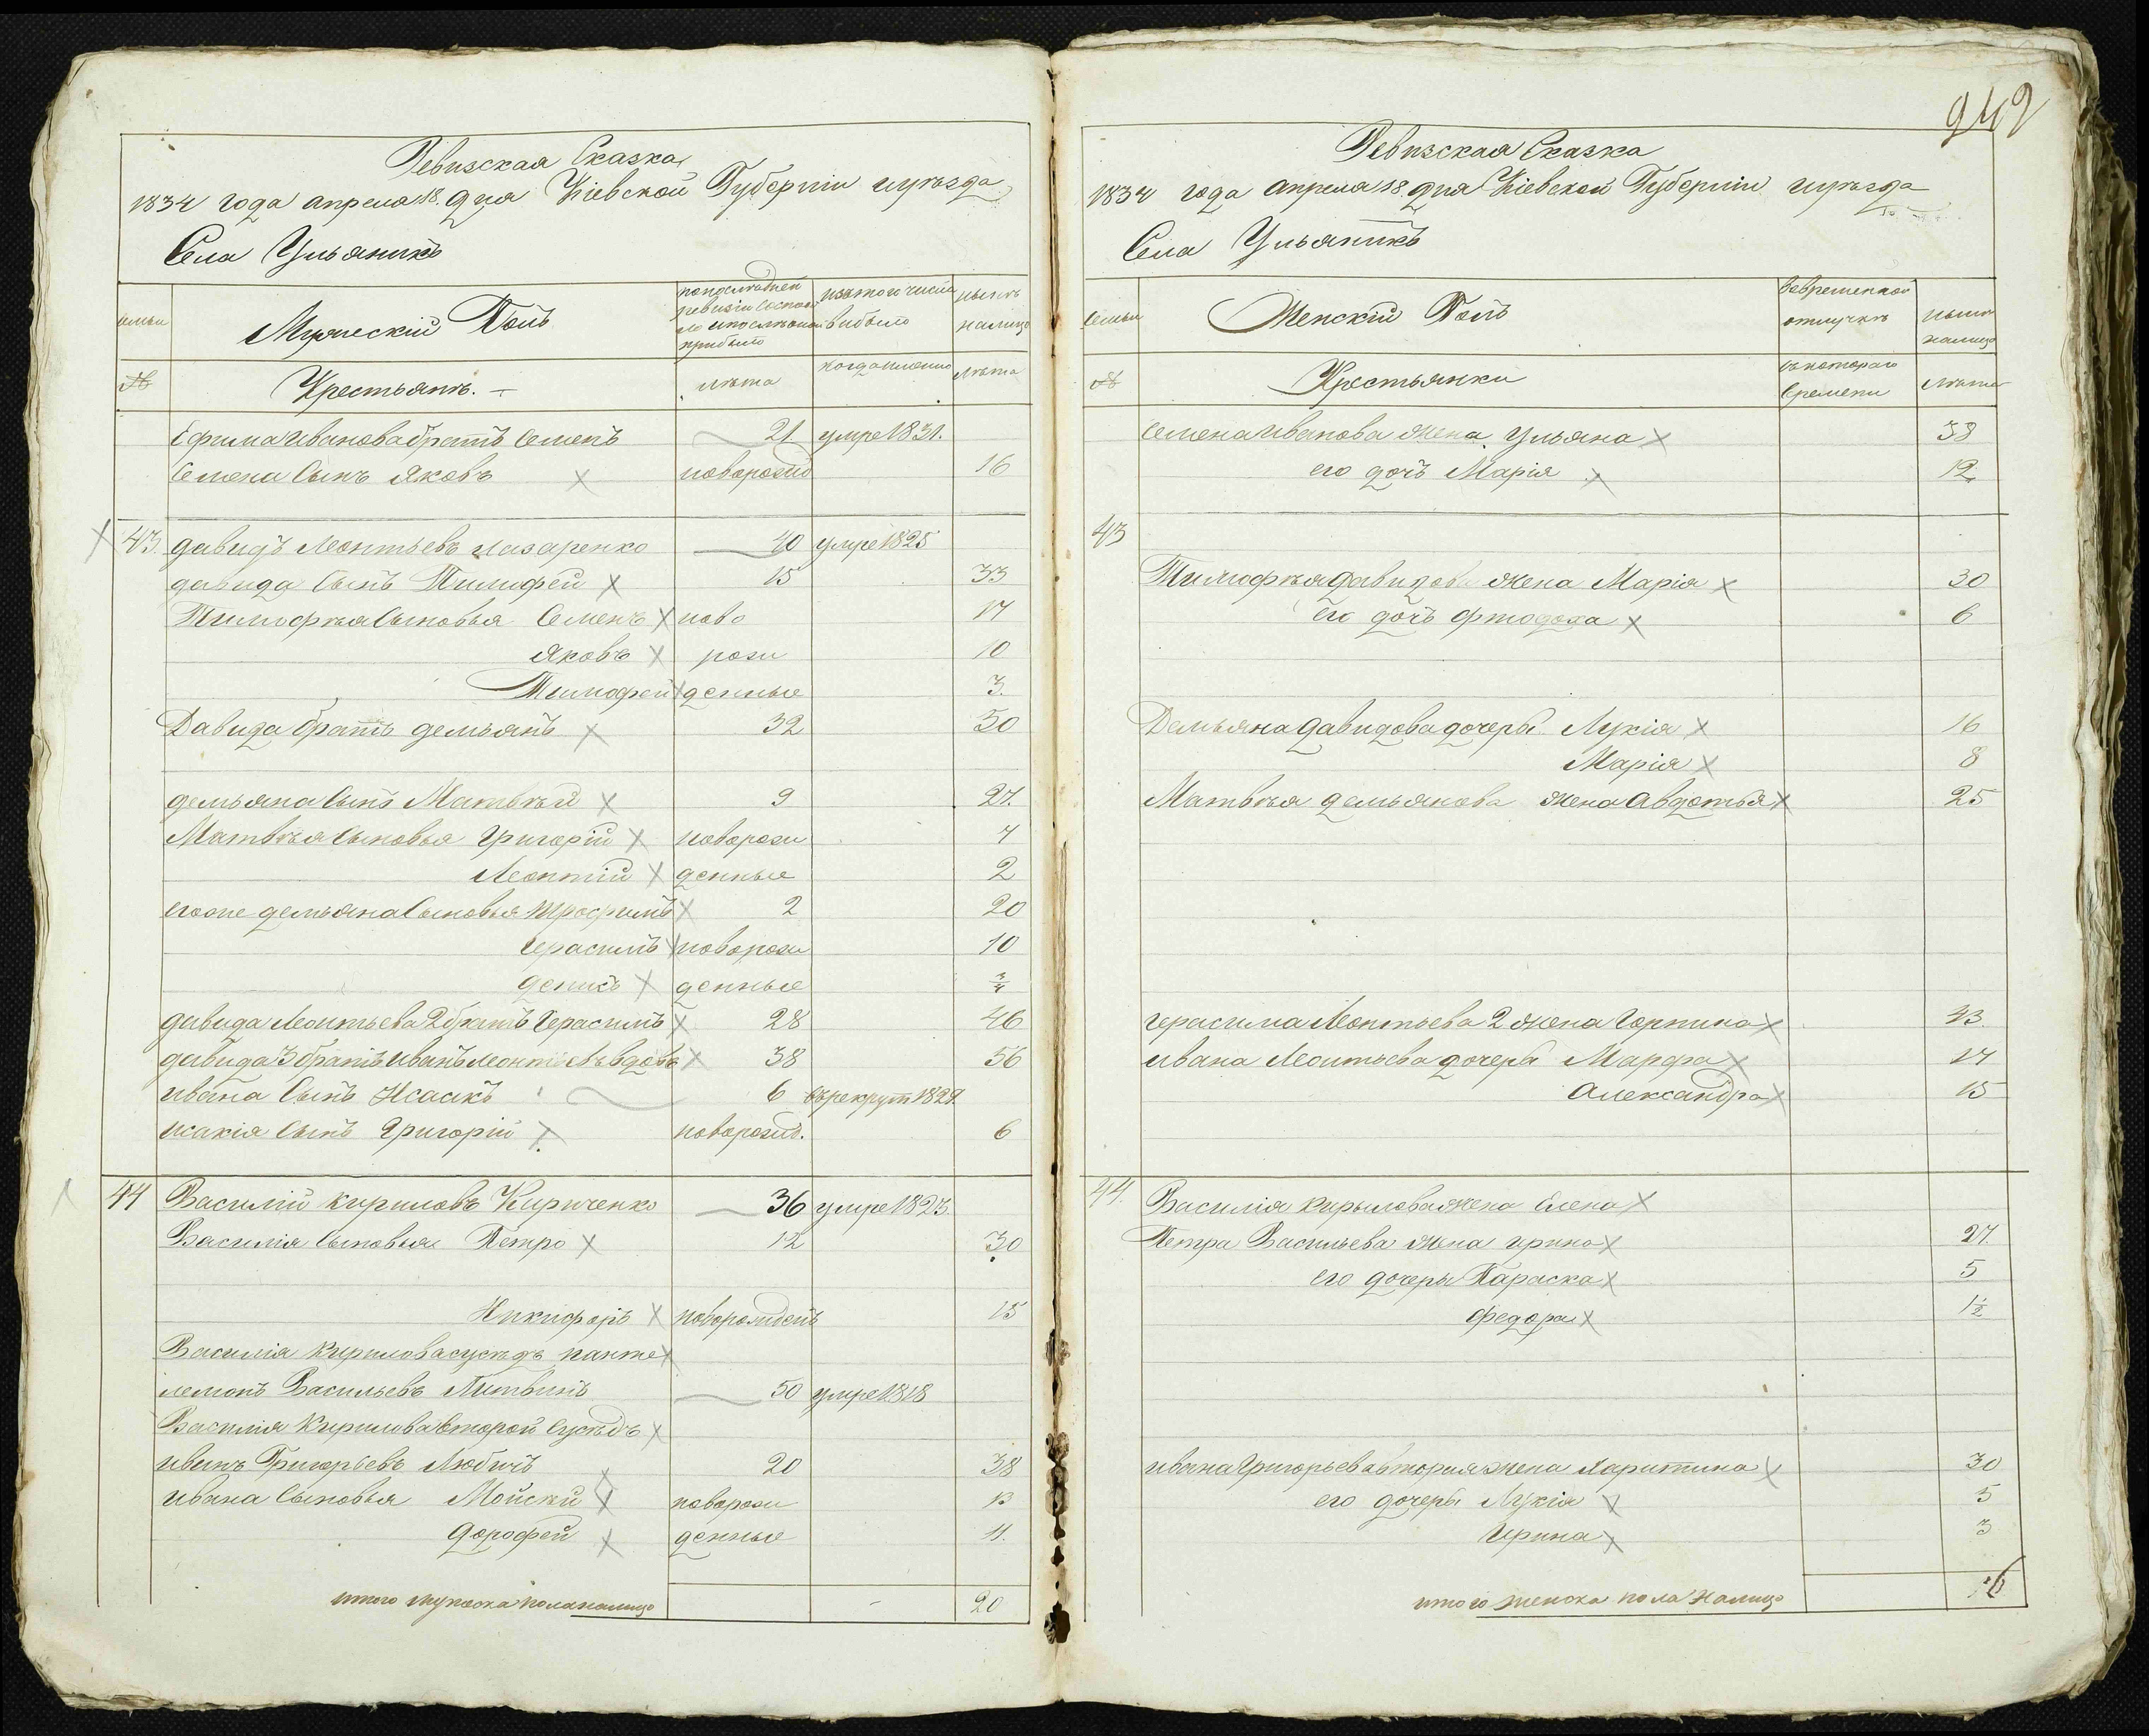 Ревизская Сказка
1834 года апреля 18. дня Кіевской Губерніи и уѣзда
Села Ульяникъ
семьи
Мужескій Полъ
по последней
ревизіи состоя
ло и после оной
прибыло
изъ того числа
выбыло
нынѣ
налицо
№
Крестьянъ. –
лѣта
когда именно
лѣта
Ефима Иванова братъ Семенъ 21 умре 1831.
Семена Сынъ Яковъ новорожд 16
43. Давидъ Леонтьевъ Лазаренко 40 умре 1825
Давида Сынъ Тимофей 15 33
Тимофѣя Сыновья Семенъ ново 17
Яковъ рожи 10
Тимофей денные 3.
Давида братъ Демьянъ 32 50
Демьяна Сынъ Матвѣй 9 27.
Матвѣя Сыновья Григорій новорожи 4
Леонтій денные 2
его же Демьяна Сыновья Трофимъ 2 20
Герасимъ новорожи 10
Денисъ денные 3/4
Давида Леонтьева 2 братъ Герасимъ 28 46
Давида 3 братъ Иванъ Леонтьевъ вдовъ 38 56
Ивана Сынъ Исаакъ 6 въ рекрут 1829.
Исакія Сынъ Григорій новорожд. 6
44 Василій Кириловъ Кириченко 36 умре 1823.
Василія Сыновья Петро 12 30
Никифоръ новорожденъ 15
Василія Кирилова сусѣдъ Панте
лемонъ Васильевъ Литвинъ 50 умре 1818
Василія Кирилова второй Сусѣдъ
Иванъ Григорьевъ Любичъ 20 38
Ивана Сыновья Мойсей новорожи 13
Дорофей денные 11.
итого мужеска пола налицо - 20
942
Ревизская Сказка
1834 года апреля 18. дня Кіевской Губерніи и уѣзда
Села Ульяникъ
Семьи
Женскій Полъ
во временной
отлучкѣ
нынѣ
налицо
№
Крестьянки
съ котораго
времени
лѣта
Семена Иванова жена Ульяна 38
его дочь Марія 12
43
Тимофѣя Давидова жена Марія 30
его дочь Фтодоха 6
Демьяна Давидова дочеры Лукія 16
Марія 8
Матвѣя Демьянова жена Авдотья 25
Герасима Леонтьева 2 жена Горпина 43.
Ивана Леонтьева дочеры Марфа 17
Александра 15
44. Василія Кирылова жена Елена
Петра Васильева жена Ирина 27.
его дочеры Параска 5
Федора 1 1/2
Ивана Григорьева вторая жена Харитина 30
его дочеры Лукія 5
Ирина 3
итого женска пола налицо 16